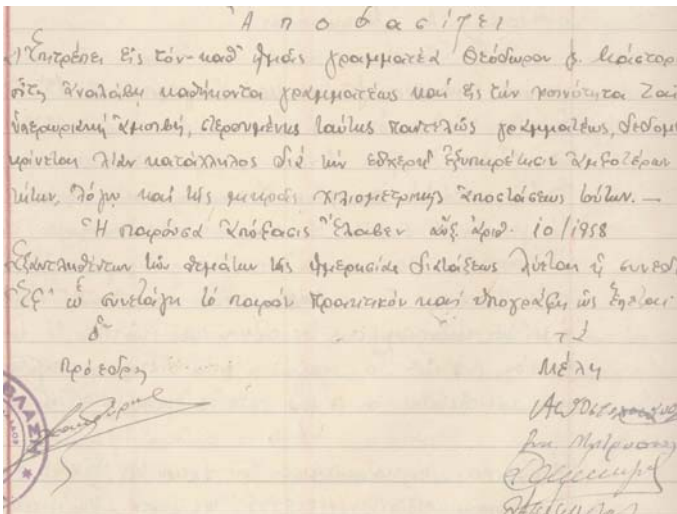 Ἀποφασίζει
Ἐπιτρέπει εἰς τόν καθ' ἡμᾶς γραμματέα Θεόδωρον
ἀναλάβῃ καθήκοντα γραμματέως καί εἰς τήν κοινότητα
ἀμοιβῇ, στερουμένης ταύτης παντελῶς γραμματέως, δεδομ
κρίνεται λίαν κατάλληλος διά τήν εὐχερῆ ἐξυπηρέτησιν ἀμφοτέρων
τήτων, λόγῳ καί τῆς μικρᾶς χιλιομετρικῆς ἀποστάσεως τούτων. —
Ἡ παροῦσα ἀπόφασις ἔλαβεν αὔξ. ἀριθ. 10/1958
Ἐξαντληθέντων τῶν θεμάτων τῆς ἡμερησίας διατάξεως λύεται ἡ συνεδ
Ἐφ' ᾧ συνετάγη τό παρόν πρακτικόν καί ὑπογράφη ὡς ἕπεται
ὁ τά
Πρόεδρος Μέλη